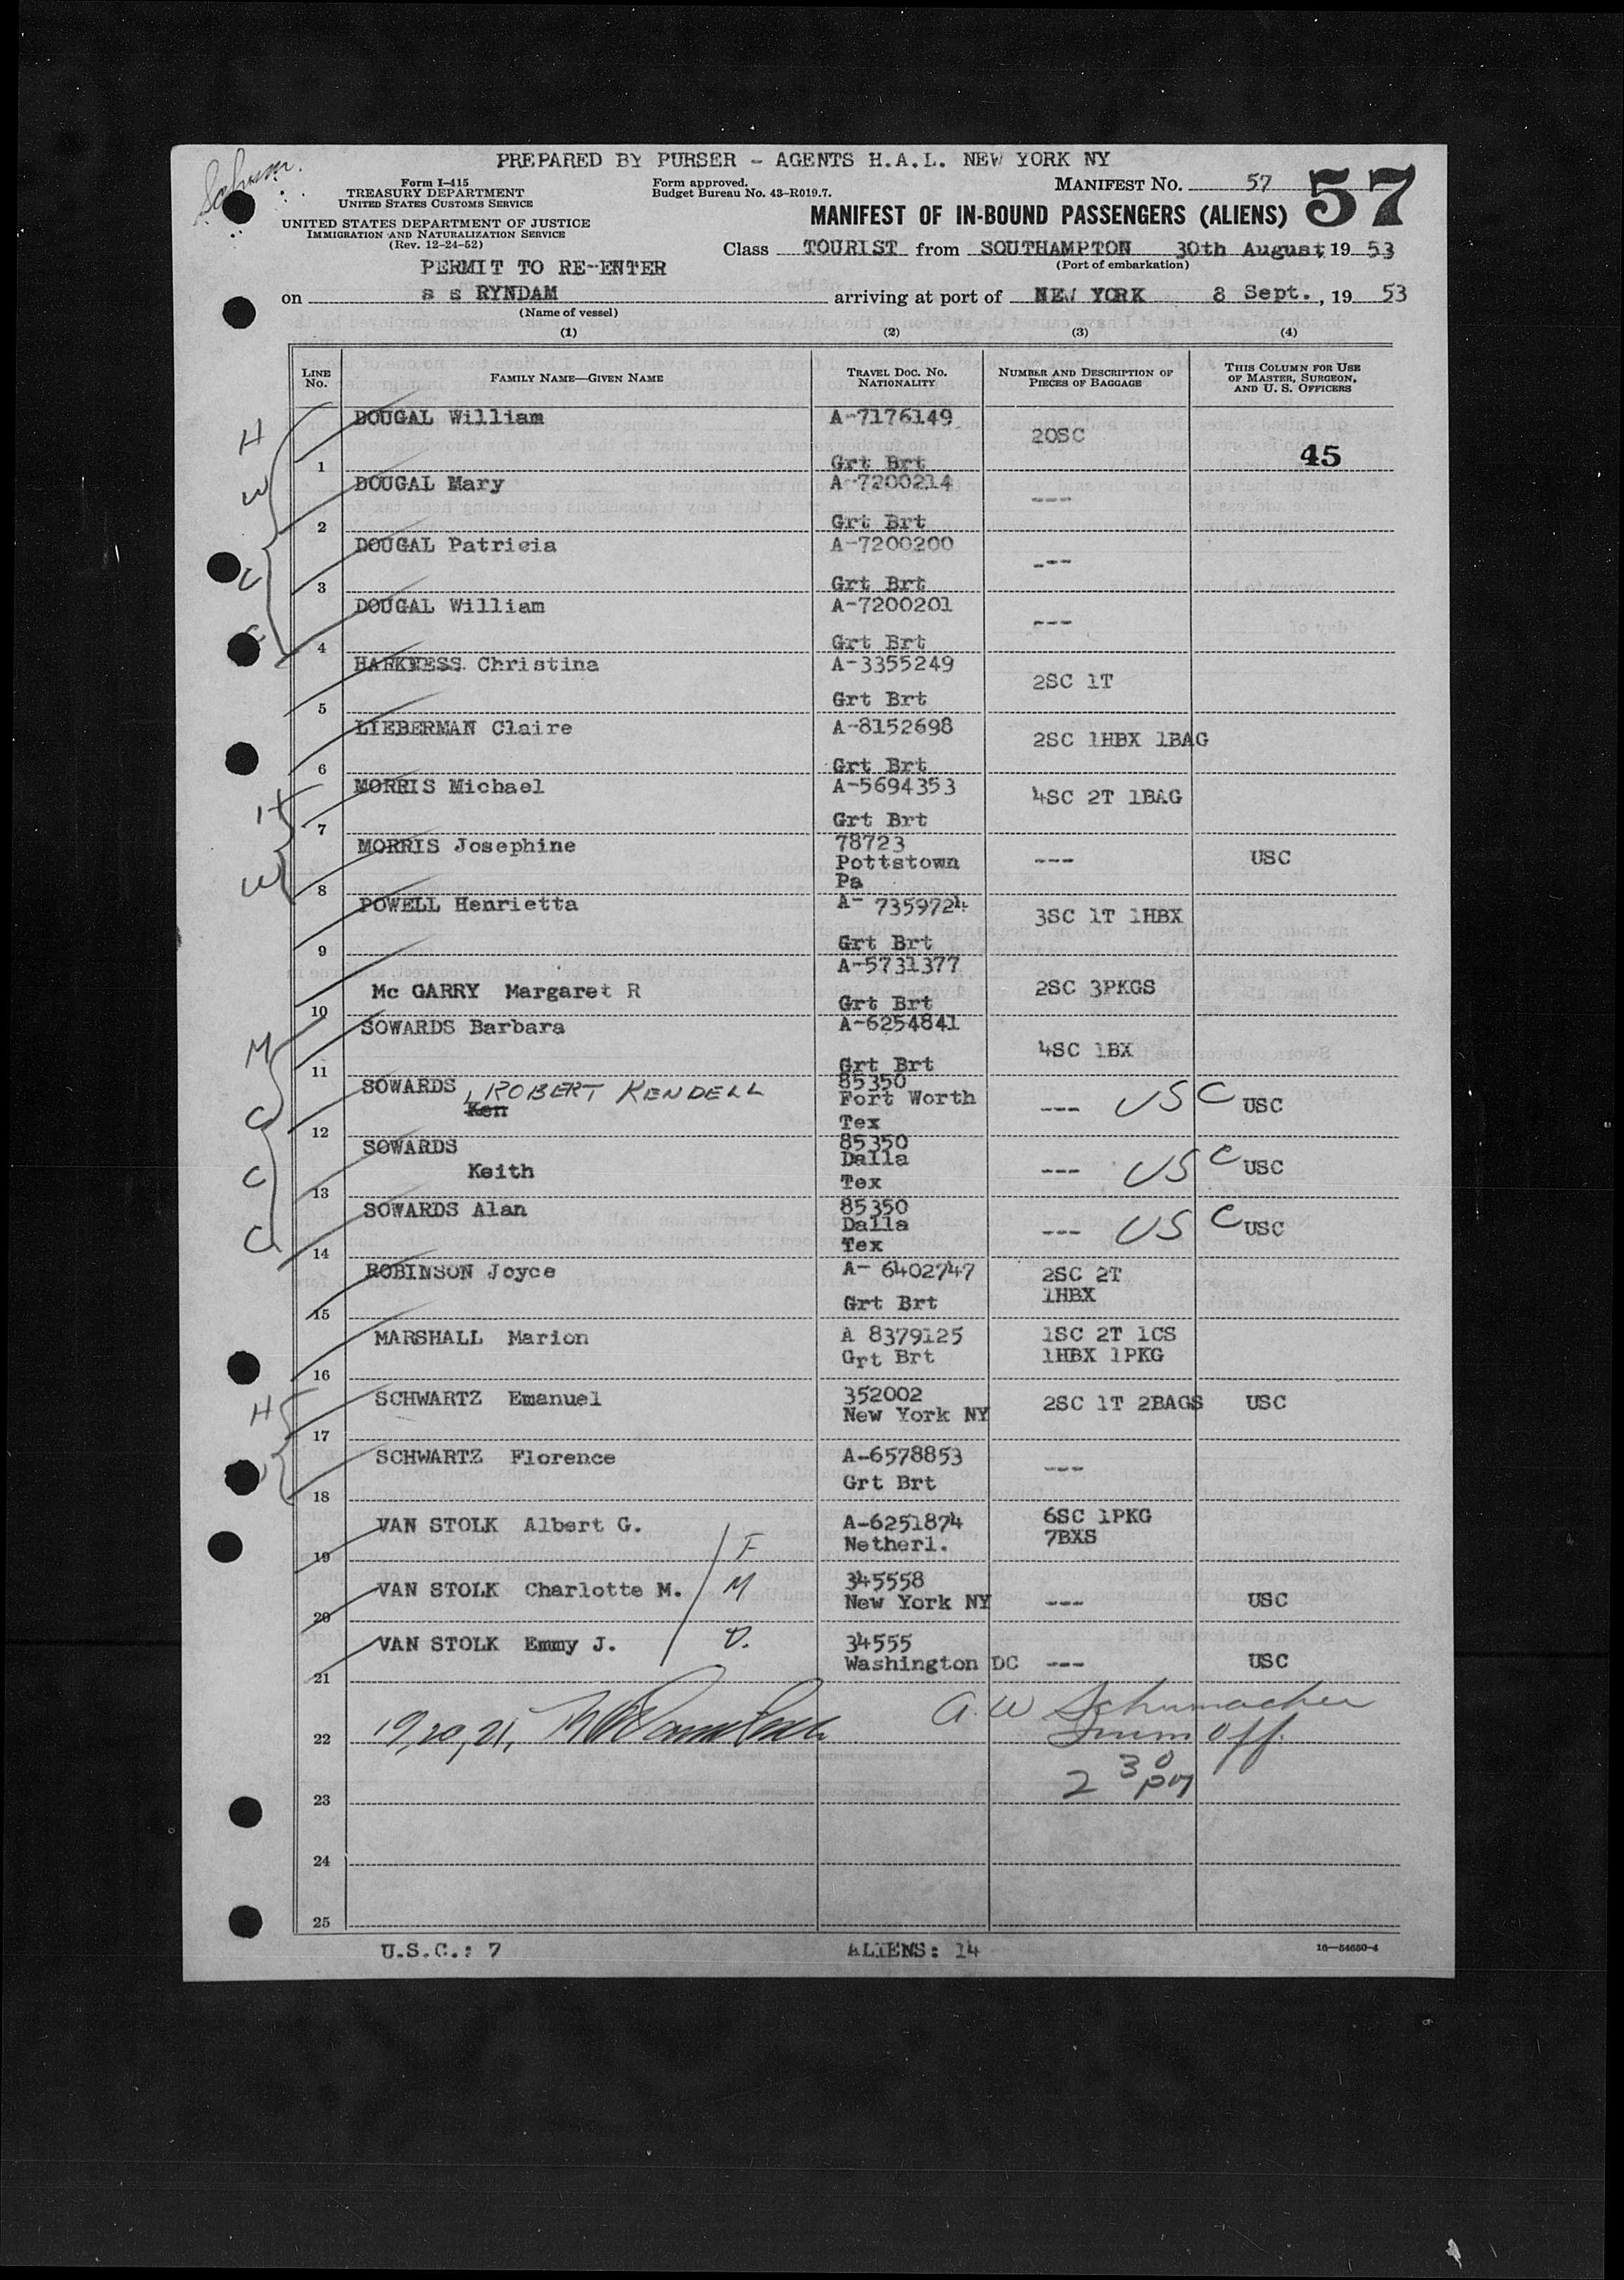 Schum.
PREPARED BY PURSER - AGENTS H.A.L. NEW YORK NY
Form I-415
TREASURY DEPARTMENT
UNITED STATES CUSTOMS SERVICE
UNITED STATES DEPARTMENT OF JUSTICE
IMMIGRATION AND NATURALIZATION SERVICE
(Rev. 12-24-52)
Form approved.
Budget Bureau No. 43-R019.7.
MANIFEST NO. 57 57
MANIFEST OF IN-BOUND PASSENGERS (ALIENS)
Class TOURIST from SOUTHAMPTON 30th August, 19 53
(Port of embarkation)
PERMIT TO RE-ENTER
on s s RYNDAM arriving at port of NEW YORK 8 Sept., 19 53
(Name of vessel)
(1) (2) (3) (4)
LINE NO. FAMILY NAME—GIVEN NAME TRAVEL DOC. NO. NATIONALITY NUMBER AND DESCRIPTION OF PIECES OF BAGGAGE THIS COLUMN FOR USE OF MASTER, SURGEON, AND U. S. OFFICERS
H 1 DOUGAL William A-7176149 Grt Brt 20SC 45
W 2 DOUGAL Mary A-7200214 Grt Brt ---
C 3 DOUGAL Patricia A-7200200 Grt Brt ---
C 4 DOUGAL William A-7200201 Grt Brt ---
5 HARKNESS Christina A-3355249 Grt Brt 2SC 1T
6 LIEBERMAN Claire A-8152698 Grt Brt 2SC 1HBX 1BAG
H 7 MORRIS Michael A-5694353 Grt Brt 4SC 2T 1BAG
W 8 MORRIS Josephine 78723 Pottstown Pa --- USC
9 POWELL Henrietta A- 7359724 Grt Brt 3SC 1T 1HBX
10 Mc GARRY Margaret R A-5731377 Grt Brt 2SC 3PKGS
M 11 SOWARDS Barbara A-6254841 Grt Brt 4SC 1BX
C 12 SOWARDS, ROBERT KENDELL Ken 85350 Fort Worth Tex --- USC USC
C 13 SOWARDS Keith 85350 Dalla Tex --- USC USC
C 14 SOWARDS Alan 85350 Dalla Tex --- USC USC
15 ROBINSON Joyce A- 6402747 Grt Brt 2SC 2T 1HBX
16 MARSHALL Marion A 8379125 Grt Brt 1SC 2T 1CS 1HBX 1PKG
H 17 SCHWARTZ Emanuel 352002 New York NY 2SC 1T 2BAGS USC
18 SCHWARTZ Florence A-6578853 Grt Brt ---
19 VAN STOLK Albert G. F A-6251874 Netherl. 6SC 1PKG 7BXS
20 VAN STOLK Charlotte M. M 345558 New York NY --- USC
21 VAN STOLK Emmy J. D. 34555 Washington DC --- USC
22 19, 20, 21, A. W Schumacher
Imm Off.
23 2 30 pm
24
25
U.S.C.: 7 ALIENS: 14 16—54650-4